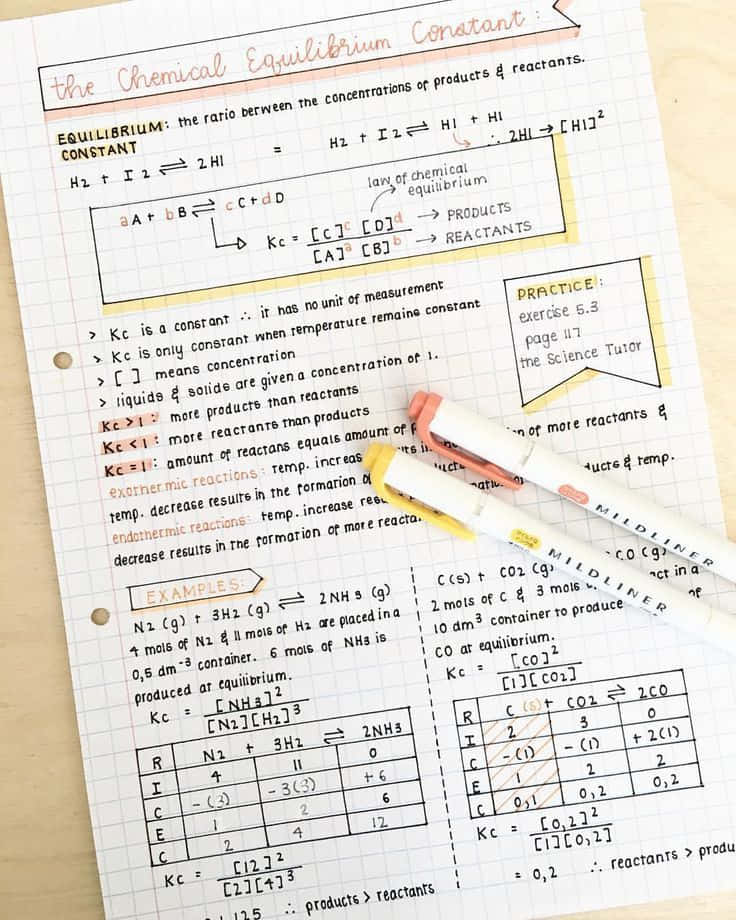 the Chemical Equilibrium Constant :
EQUILIBRIUM CONSTANT : the ratio between the concentrations of products & reactants.
H2 + I2 ⇌ 2HI = H2 + I2 ⇌ HI + HI
∴ 2HI → [HI]²
aA + bB ⇌ cC + dD
law of chemical equilibrium
Kc = [C]ᶜ [D]ᵈ → PRODUCTS
[A]ᵃ [B]ᵇ → REACTANTS
> Kc is a constant ∴ it has no unit of measurement
> Kc is only constant when temperature remains constant
> [ ] means concentration
> liquids & solids are given a concentration of 1.
Kc > 1 : more products than reactants
Kc < 1 : more reactants than products
Kc = 1 : amount of reactans equals amount of
exothermic reactions : temp. increas of more reactants &
temp. decrease results in the formation of ducts & temp.
endothermic reactions : temp. increase res
decrease results in the formation of more reacta
PRACTICE :
exercise 5.3
page 117
the Science Tutor
MILDLINER
MILDLINER
EXAMPLES:
N2 (g) + 3H2 (g) ⇌ 2NH3 (g)
4 mols of N2 & 11 mols of H2 are placed in a
0,5 dm⁻³ container. 6 mols of NH3 is
produced at equilibrium.
Kc = [NH3]²
[N2][H2]³
R N2 + 3H2 ⇌ 2NH3
I 4 11 0
C -(3) -3(3) +6
E 1 2 6
C 2 4 12
Kc = [12]²
[2][4]³
1,125 ∴ products > reactants
C(s) + CO2 (g) CO (g)
2 mols of C & 3 mols act in a
10 dm³ container to produce of
CO at equilibrium.
Kc = [CO]²
[1][CO2]
R C (s) + CO2 ⇌ 2CO
I 2 3 0
C -(1) -(1) +2(1)
E 1 2 2
C 0,1 0,2 0,2
Kc = [0,2]²
[1][0,2]
= 0,2 ∴ reactants > produ